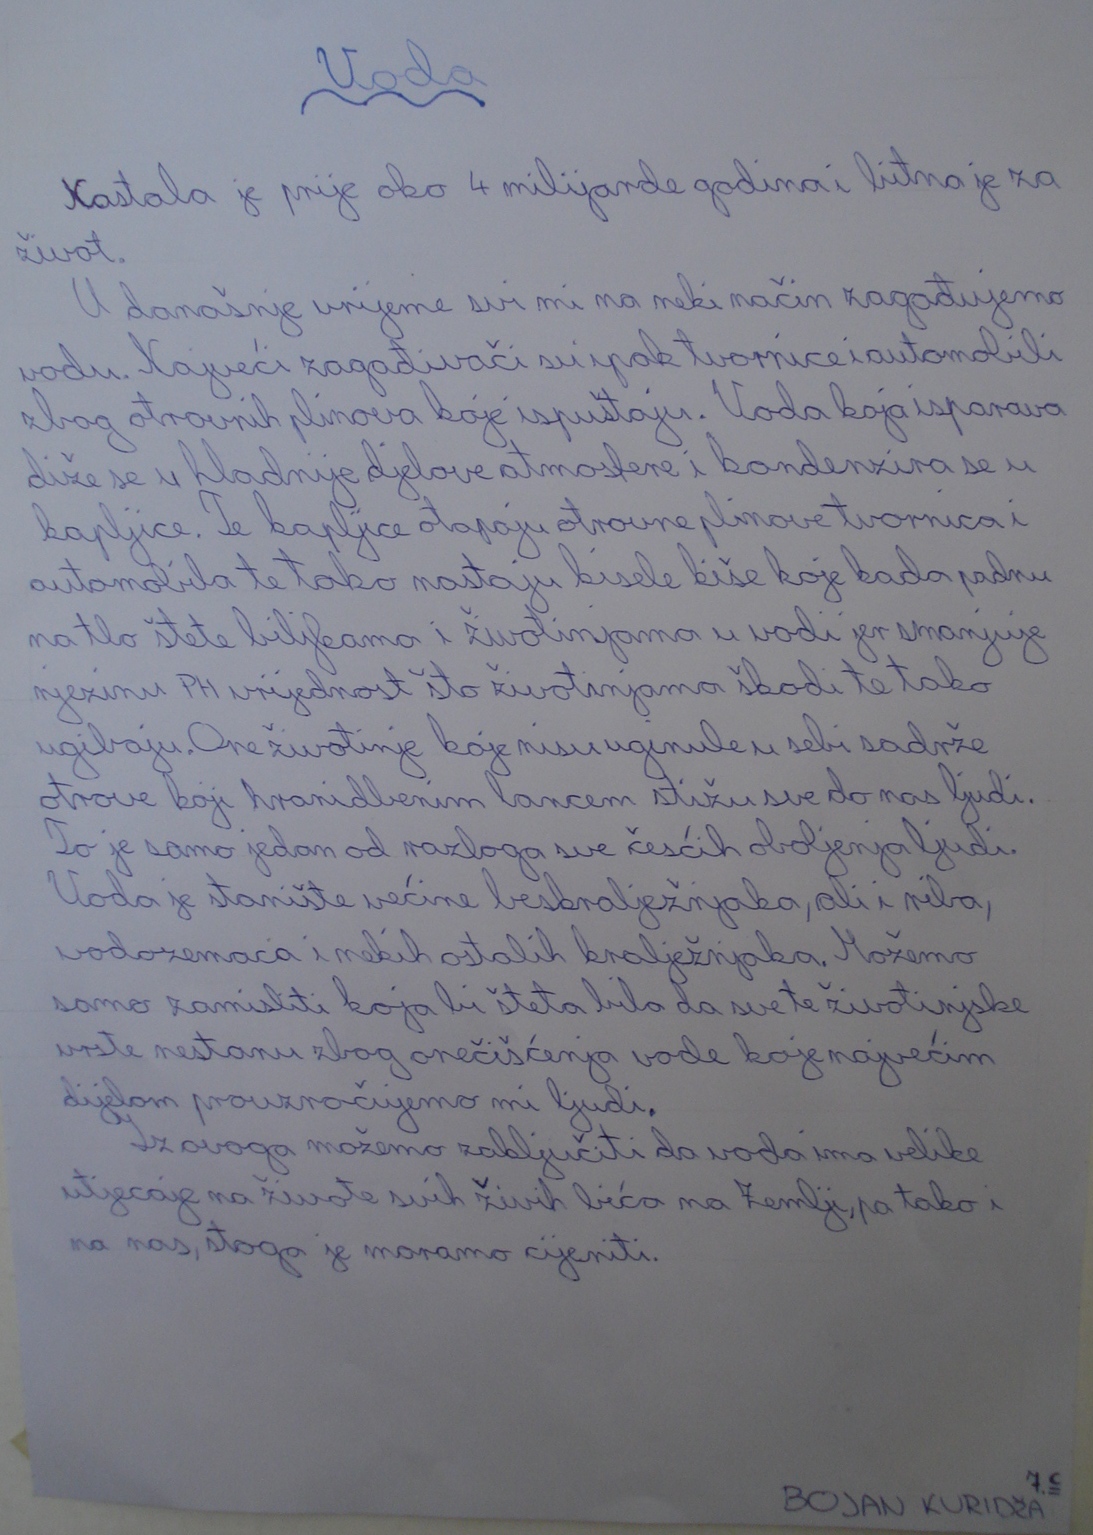 Voda
Nastala je prije oko 4 milijarde godina i bitna je za
život.
U današnje vrijeme svi mi na neki način zagađujemo
vodu. Najveći zagađivači su ipak tvornice i automobili
zbog otrovnih plinova koje ispuštaju. Voda koja isparava
diže se u hladnije djelove atmosfere i kondenzira se u
kapljice. Te kapljice otapaju otrovne plinove tvornica i
automobila te tako nastaju kisele kiše koje kada padnu
na tlo štete biljkama i životinjama u vodi jer smanjuje
njezinu PH vrijednost što životinjama škodi te tako
ugibaju. One životinje koje nisu uginule u sebi sadrže
otrove koji hranidbenim lancem stižu sve do nas ljudi.
To je samo jedan od razloga sve češćih oboljenja ljudi.
Voda je stanište većine beskralježnjaka, ali i riba,
vodozemaca i nekih ostalih kralježnjaka. Možemo
samo zamisliti koja bi šteta bila da sve te životinjske
vrste nestanu zbog onečišćenja vode koje najvećim
dijelom prouzročujemo mi ljudi.
Iz ovoga možemo zaključiti da voda ima velike
utjecaje na živote svih živih bića na Zemlji, pa tako i
na nas, stoga je moramo cijeniti.
7.c
BOJAN KURIDŽA